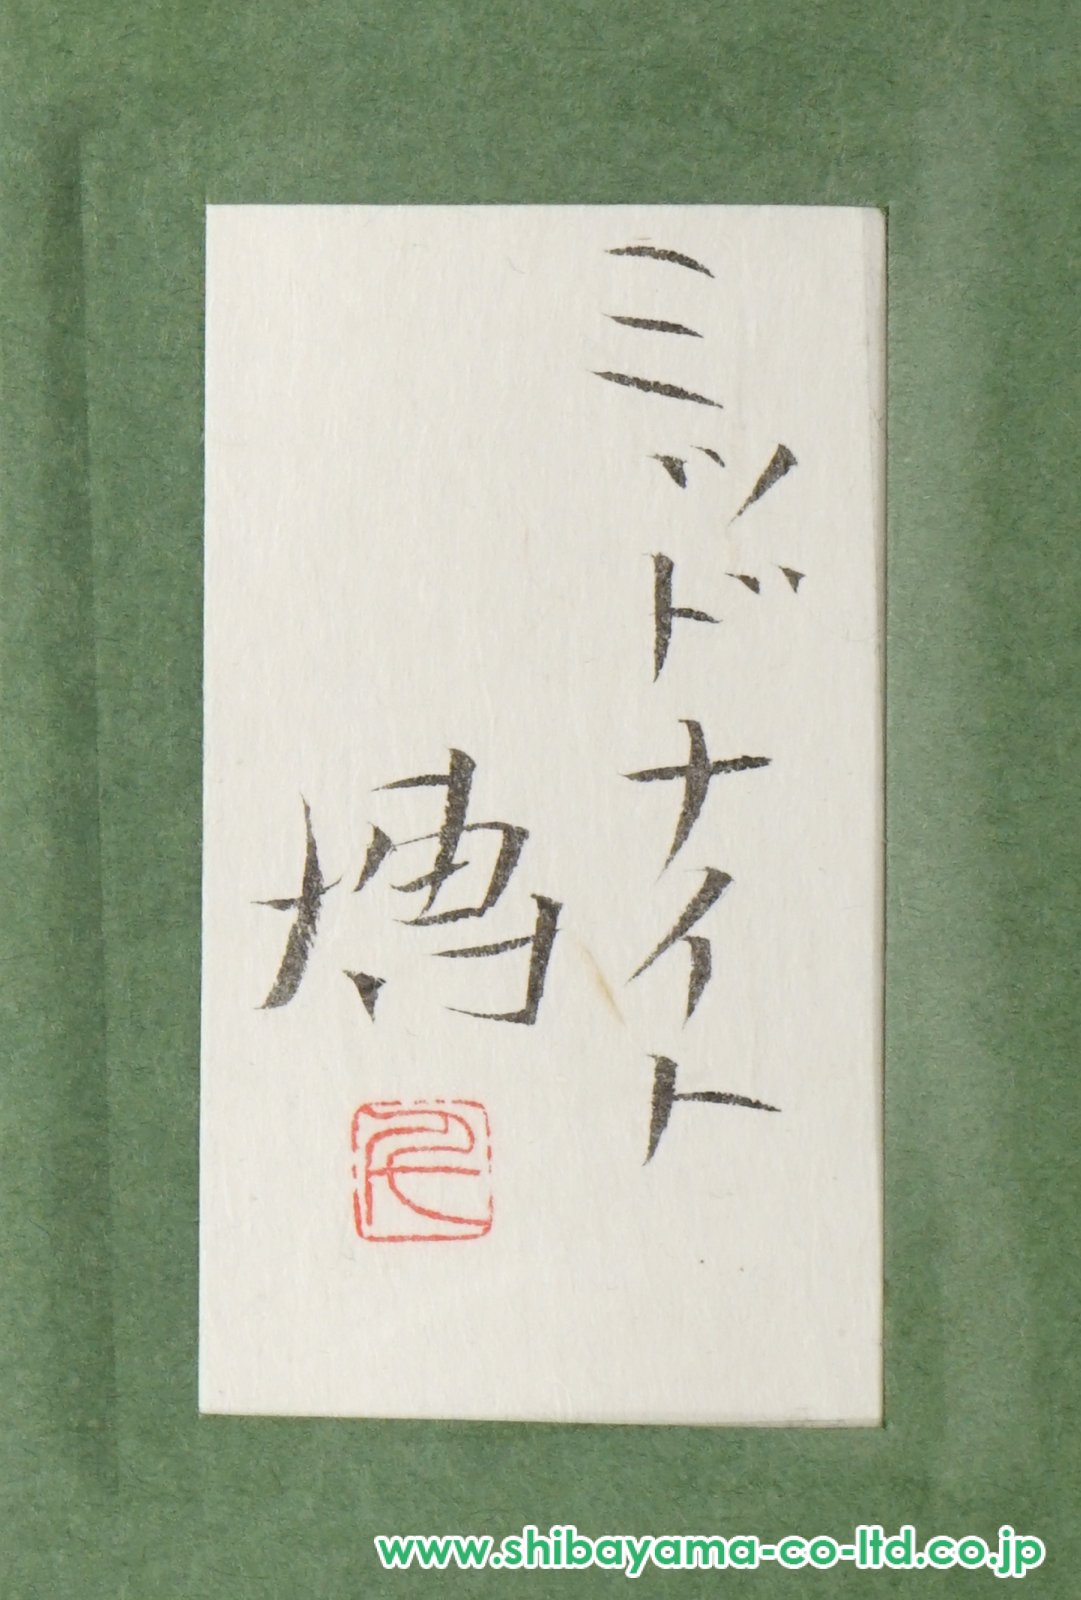 ミッドナイト
博
www.shibayama-co-ltd.co.jp